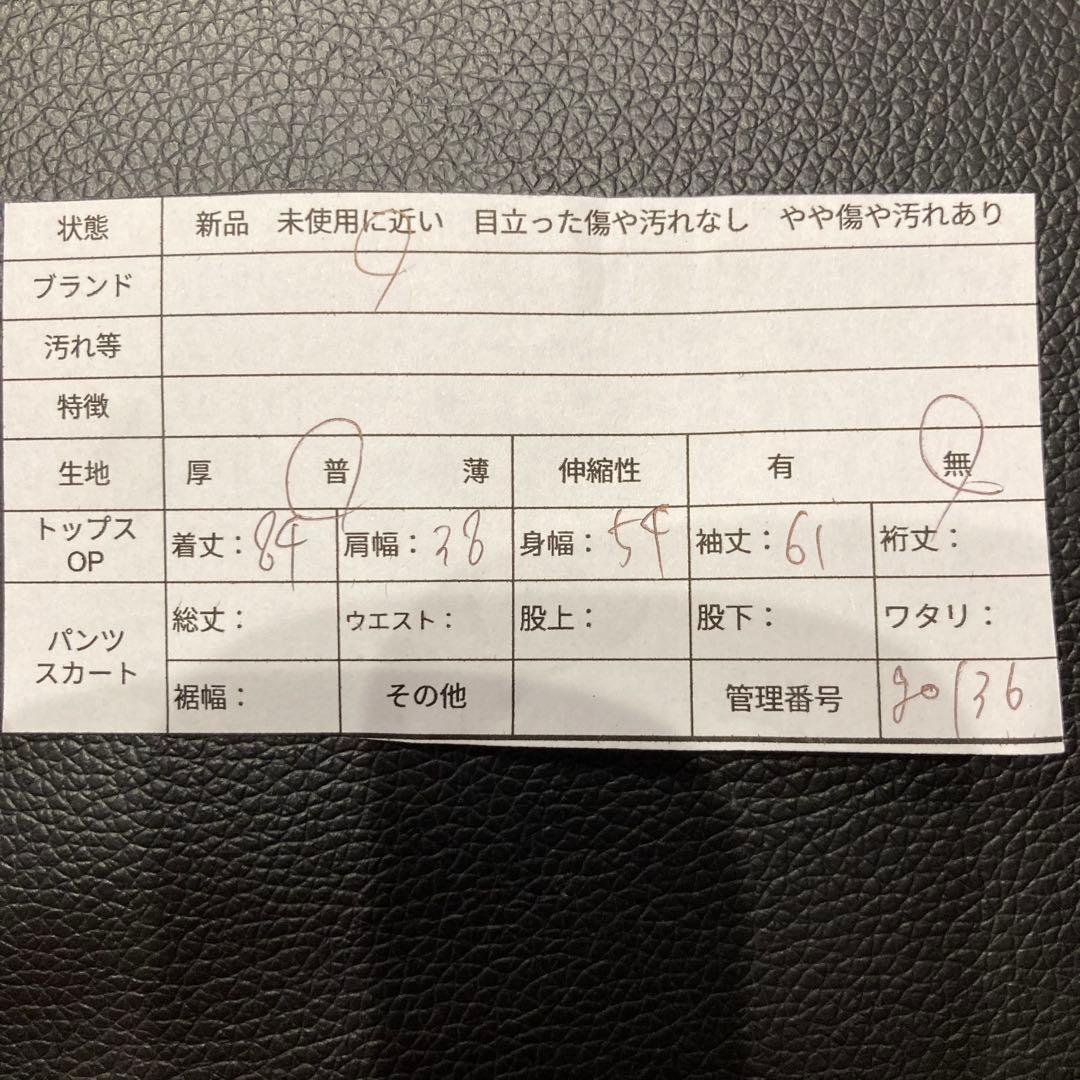 状態 新品 未使用に近い 目立った傷や汚れなし やや傷や汚れあり
ブランド
汚れ等
特徴
生地 厚 普 薄 伸縮性 有 無
トップス OP 着丈：84 肩幅：38 身幅：54 袖丈：61 裄丈：
パンツ スカート 総丈： ウエスト： 股上： 股下： ワタリ：
裾幅： その他 管理番号 go136